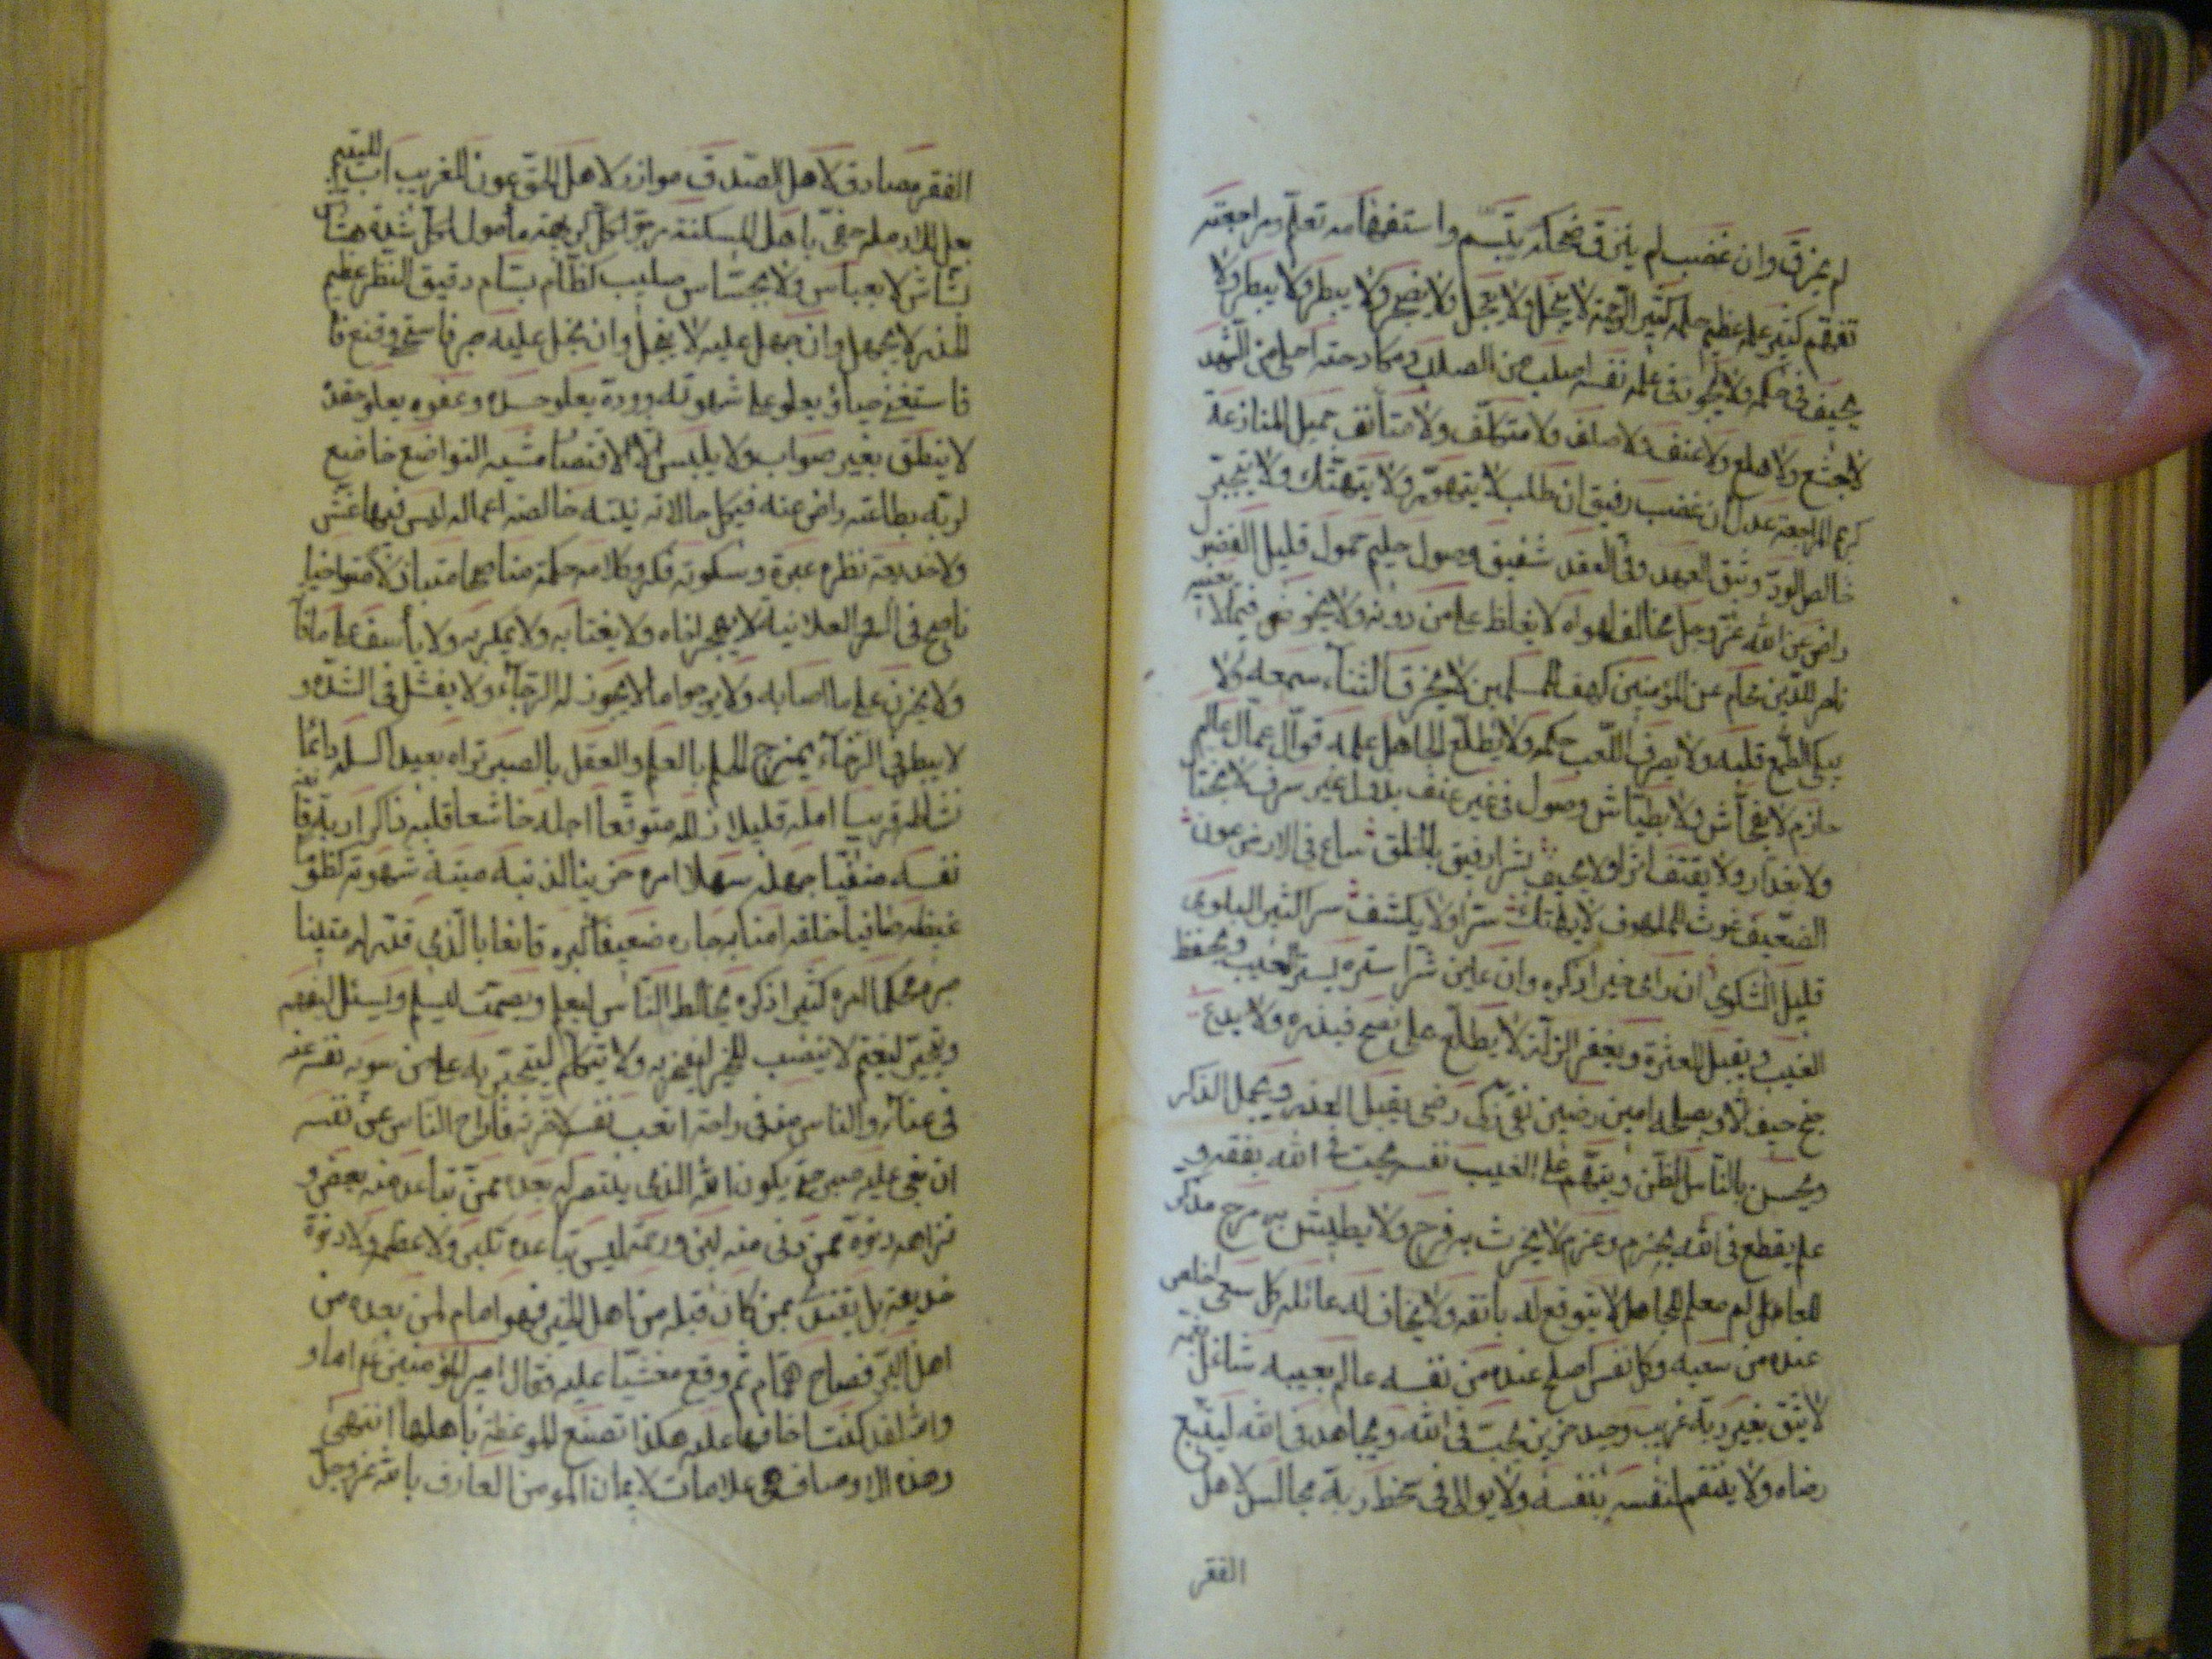 لم يخرق وان غضب لم ينزق ضحكه تبسّم واستفهامه تعلّم ومراجعته
تفهّم كثير علمه عظيم حلمه كثير الرحمة لا يبخل ولا يعجل ولا يضجر ولا يبطر ولا
يحيف في حكمه ولا يجور في علمه نفسه اصلب من الصلد ومكادحته احلى من الشهد
لا جشع ولا هلع ولا عنف ولا صلف ولا متكلّف ولا متأنّف جميل المنازعة
كريم المراجعة عدل ان غضب رفيق ان طلب لا يتهوّر ولا يتهتّك ولا يتجبّر
خالص الودّ وثيق العهد وفيّ العقد شفيق وصول حليم حمول قليل الفضول
راض عن الله عزّ وجلّ مخالف لهواه لا يغلظ على من دونه ولا يخوض فيما لا يعنيه
ناصر للدّين محام عن المؤمنين كهف المسلمين لا يخرق الثناء سمعه ولا
ينكي الطمع قلبه ولا يصرف اللعب حكمه ولا يطلع الجاهل علمه قوّال عمّال عالم
حازم لا بفحّاش ولا بطيّاش وصول في غير عنف بذول في غير سرف لا بختا
ولا بغدّار ولا يقتفي اثرا ولا يحيف بشرا رفيق بالخلق ساع في الارض عون
الضعيف غوث الملهوف لا يهتك سترا ولا يكشف سرا كثير البلوى
قليل الشكوى ان راى خيرا ذكره وان عاين شرا ستره يستر العيب ويحفظ
الغيب ويقيل العثرة ويغفر الزلّة لا يطلع على نصح فيذره ولا يدع
جنح حيف فيصلحه امين رصين تقيّ نقيّ زكيّ رضيّ يقبل العذر ويجمل الذكر
ويحسن بالنّاس الظنّ ويتّهم على الغيب نفسه يحبّ في الله بفقه و
علم ويقطع في الله بحزم وعزم لا يخرق به فرح ولا يطيش به مرح مذكّر
للعالم معلم للجاهل لا يتوقع له بائقة ولا يخاف له غائلة كل سعي اخلص
عنده من سعيه وكل نفس اصلح عنده من نفسه عالم بعيبه شاغل بغمّه
لا يثق بغير ربّه غريب وحيد حزين يحبّ في الله ويجاهد في الله ليتّبع
رضاه ولا ينتقم لنفسه بنفسه ولا يوالي في سخط ربّه مجالس لاهل
الفقر
الفقر مصادق لاهل الصّدق موازر لاهل الحقّ عون للغريب اب لليتيم
بعل للارملة حفيّ باهل المسكنة مرجوّ لكلّ كريهة مأمول لكلّ شدّة هشّا
بشّاش لا بعبّاس ولا بجسّاس صليب كظّام بسّام دقيق النّظر عظيم
الحذر لا يجهل وان جهل عليه لا يبخل وان بخل عليه صبر فاستحى وقنع فا
فاستغنى حياؤه يعلو على شهوته وودّه يعلو حسده وعفوه يعلو حقده
لا ينطق بغير صواب ولا يلبس الّا الاقتصاد مشيه التواضع خاضع
لربّه بطاعته راض عنه في كل حالاته نيّته خالصة اعماله ليس فيها غشّ
ولا خديعة نظره عبرة وسكوته فكر وكلامه حكمة مناصحا متباذلا متواخيا
ناصح في السر والعلانية لا يهجر اخاه ولا يغتابه ولا يمكر به ولا يأسف على ما فا
ولا يحزن على ما اصابه ولا يرجوا ما لا يجوز له الرّجآء ولا يفشل في الشدّة و
لا يبطر في الرخآء يمزج الحلم بالعلم والعقل بالصبر تراه بعيدا كسله دائما
نشاطه قريبا امله قليلا زلله متوقّعا اجله خاشعا قلبه ذاكرا ربّه قانعة
نفسه منفيّا جهله سهلا امره حزينا لذنبه ميتة شهوته كظوما
غيظه صافيا خلقه امنا به جاره ضعيفا كبره قانعا بالّذي قدّر له متينا
صبره محكما امره كثيرا ذكره يخالط النّاس ليعلم ويصمت ليسلم ويسئل ليفهم
ويتّجر ليغنم لا ينصب للخير ليفخر به ولا يتكلم ليتجبّر به على من سواه نفسه منه
في عناء والناس منه في راحة اتعب نفسه لاخرته فاراح الناس من نفسه
ان بغي عليه صبر حتى يكون الله الذي ينتصر له بعده ممّن تباعد منه بغض و
نزاهة ودنوّه ممّن دنى منه لين ورحمة ليس تباعده تكبّرا ولا عظمة ولا دنوّه
خديعة بل يقتدي بمن كان قبله من اهل الخير فهو امام لمن بعده من
اهل البرّ فصاح همّام ثم وقع مغشيّا عليه فقال امير المؤمنين ع اما و
والله لقد كنت اخافها عليه هكذا تصنع الموعظة باهلها انتهى
وهذه الاوصاف هي علامات لايمان المومن العارف بالله عزّ وجلّ